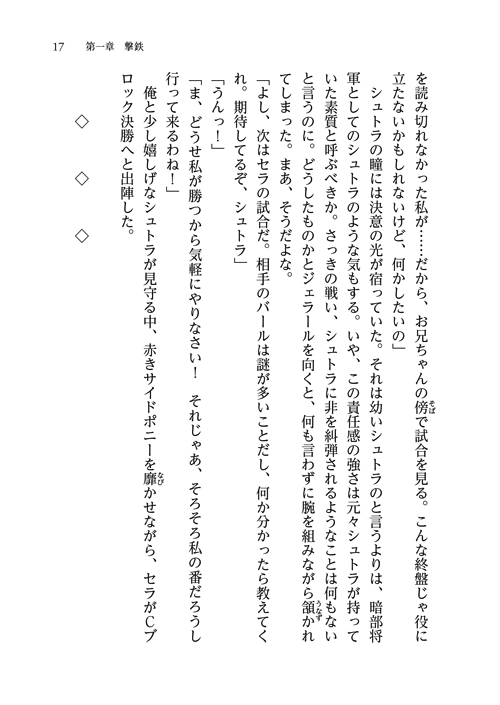 17　第一章　撃鉄
を読み切れなかった私が……だから、お兄ちゃんの傍で試合を見る。こんな終盤じゃ役に
立たないかもしれないけど、何かしたいの」
　シュトラの瞳には決意の光が宿っていた。それは幼いシュトラのと言うよりは、暗部将
軍としてのシュトラのような気もする。いや、この責任感の強さは元々シュトラが持って
いた素質と呼ぶべきか。さっきの戦い、シュトラに非を糾弾されるようなことは何もない
と言うのに。どうしたものかとジェラールを向くと、何も言わずに腕を組みながら頷かれ
てしまった。まあ、そうだよな。
「よし、次はセラの試合だ。相手のバールは謎が多いことだし、何か分かったら教えてく
れ。期待してるぞ、シュトラ」
「うんっ！」
「ま、どうせ私が勝つから気軽にやりなさい！　それじゃあ、そろそろ私の番だろうし
行って来るわね！」
　俺と少し嬉しげなシュトラが見守る中、赤きサイドポニーを靡かせながら、セラがＣブ
ロック決勝へと出陣した。
◇　◇　◇
そば
うなず
なび